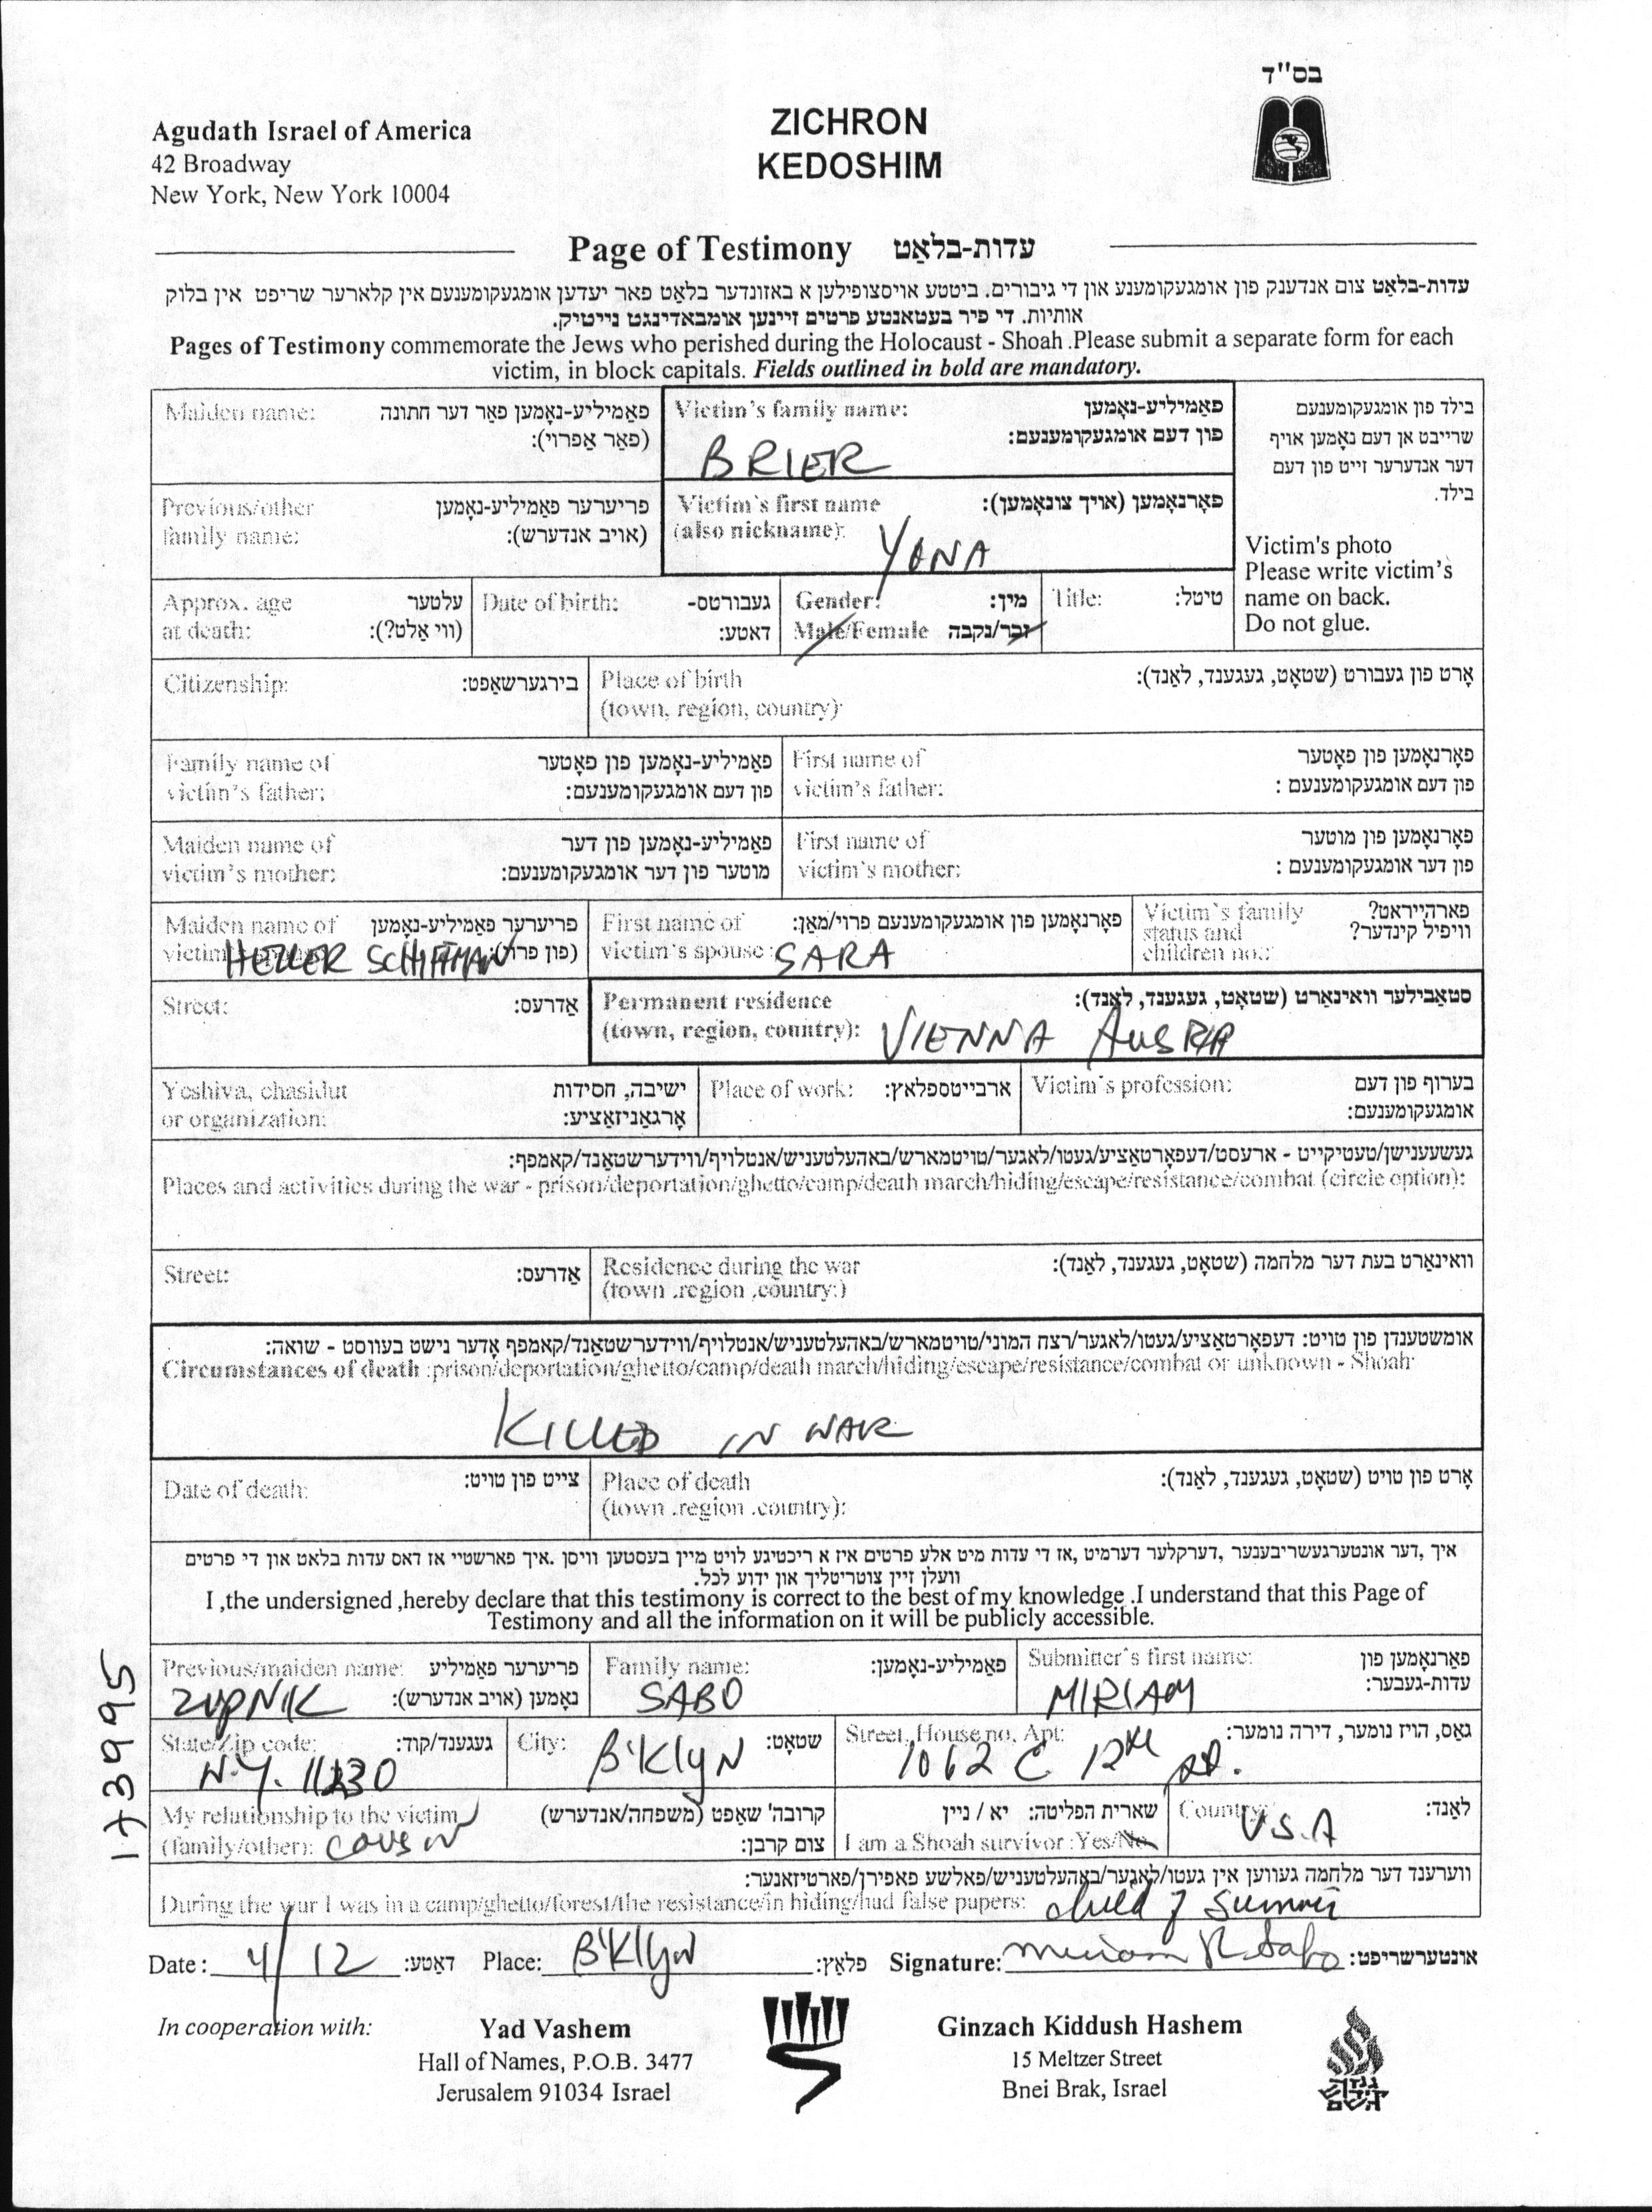 בס"ד
Agudath Israel of America
42 Broadway
New York, New York 10004
ZICHRON
KEDOSHIM
Page of Testimony עדות-בלאַט
עדות-בלאַט צום אנדענק פון אומגעקומענע און די גיבורים. ביטטע אויסצופילען א באזונדער בלאַט פאר יעדען אומגעקומענעם אין קלארער שריפט אין בלוק
אותיות. די פיר בעטאנטע פרטים זיינען אומבאדינגט נייטיק.
Pages of Testimony commemorate the Jews who perished during the Holocaust - Shoah .Please submit a separate form for each
victim, in block capitals. Fields outlined in bold are mandatory.
Maiden name: פאַמיליע-נאָמען פאַר דער חתונה
(פאַר אַפרוי):
Victim's family name: פאַמיליע-נאָמען
פון דעם אומגעקומענעם:
BRIER
בילד פון אומגעקומענעם
שרייבט אן דעם נאָמען אויף
דער אנדערער זייט פון דעם
בילד.
Previous/other פריערער פאַמיליע-נאָמען
family name: (אויב אנדערש):
Victim's first name פאָרנאָמען (אויך צונאָמען):
(also nickname):
YONA
Victim's photo
Please write victim's
name on back.
Do not glue.
Approx. age עלטער
at death: (ווי אַלט?):
Date of birth: געבורטס-
דאטע:
Gender: מין:
Male/Female זכר/נקבה
Title: טיטל:
Citizenship: בירגערשאַפט:
Place of birth אָרט פון געבורט (שטאָט, געגענד, לאַנד):
(town, region, country):
Family name of פאַמיליע-נאָמען פון פאָטער
victim's father: פון דעם אומגעקומענעם:
First name of פאָרנאָמען פון פאָטער
victim's father: פון דעם אומגעקומענעם :
Maiden name of פאַמיליע-נאָמען פון דער
victim's mother: מוטער פון דער אומגעקומענעם:
First name of פאָרנאָמען פון מוטער
victim's mother: פון דער אומגעקומענעם :
Maiden name of פריערער פאַמיליע-נאָמען
victim (פון פרוי):
HELLER SCHIFFMAN
First name of פאָרנאָמען פון אומגעקומענעם פרוי/מאַן:
victim's spouse : SARA
Victim's family פארהייראט?
status and וויפיל קינדער?
children no.:
Street: אַדרעס:
Permanent residence סטאַבילער וואינאָרט (שטאָט, געגענד, לאַנד):
(town, region, country): VIENNA AUSRIA
Yeshiva, chasidut ישיבה, חסידות
or organization: אָרגאַניזאַציע:
Place of work: ארבייטספלאץ:
Victim's profession: בערוף פון דעם
אומגעקומענעם:
געשעענישן/טעטיקייט - ארעסט/דעפאָרטאַציע/געטו/לאגער/טויטמארש/באהעלטעניש/אנטלויף/ווידערשטאַנד/קאמפף:
Places and activities during the war - prison/deportation/ghetto/camp/death march/hiding/escape/resistance/combat (circle option):
Street: אַדרעס:
Residence during the war וואינאַרט בעת דער מלחמה (שטאָט, געגענד, לאַנד):
(town .region ,country:)
אומשטענדן פון טויט: דעפאָרטאַציע/געטו/לאגער/רצח המוני/טויטמארש/באהעלטעניש/אנטלויף/ווידערשטאַנד/קאמפף אָדער נישט בעווסט - שואה:
Circumstances of death :prison/deportation/ghetto/camp/death march/hiding/escape/resistance/combat or unknown - Shoah:
KILLED IN WAR
Date of death: צייט פון טויט:
Place of death אָרט פון טויט (שטאָט, געגענד, לאַנד):
(town .region .country):
איך ,דער אונטערגעשריבענער ,דערקלער דערמיט ,אז די עדות מיט אלע פרטים איז א ריכטיגע לויט מיין בעסטען וויסן .איך פארשטיי אז דאס עדות בלאט און די פרטים
וועלן זיין צוטריטליך און ידוע לכל.
I ,the undersigned ,hereby declare that this testimony is correct to the best of my knowledge .I understand that this Page of
Testimony and all the information on it will be publicly accessible.
Previous/maiden name: פריערער פאַמיליע
נאָמען (אויב אנדערש):
ZUPNIK
Family name: פאַמיליע-נאָמען:
SABO
Submitter's first name: פאָרנאָמען פון
עדות-געבער:
MIRIAM
State/Zip code: געגענד/קוד:
N.Y. 11230
City: שטאָט:
B'KlyN
Street, House no, Apt: גאַס, הויז נומער, דירה נומער:
1062 E 12th
My relationship to the victim קרובה' שאַפט (משפחה/אנדערש)
(family/other): COUSIN צום קרבן:
שארית הפליטה: יא / ניין
I am a Shoah survivor :Yes/No
Country: לאַנד:
U.S.A
ווערענד דער מלחמה געווען אין געטו/לאַגער/באַהעלטעניש/פאלשע פאפירן/פארטיזאנער:
During the war I was in a camp/ghetto/forest/the resistance/in hiding/had false papers: child of
Date: 4/12 דאַטע: Place: B'Klyn פלאַץ: Signature: Miriam R. Sabo אונטערשריפט:
173995
In cooperation with:
Yad Vashem
Hall of Names, P.O.B. 3477
Jerusalem 91034 Israel
Ginzach Kiddush Hashem
15 Meltzer Street
Bnei Brak, Israel
גנזך
קידוש
השם